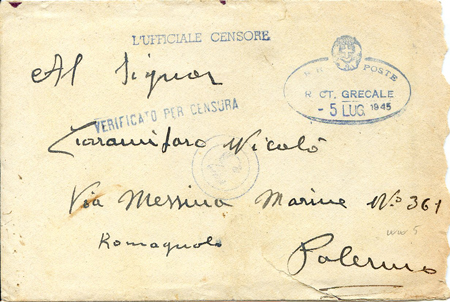 L'UFFICIALE CENSORE
Al Signor
POSTE
R CT. GRECALE
- 5 LUG. 1945
VERIFICATO PER CENSURA
Nicolò
Via Messina Marine No 361
Romagnolo
Palermo